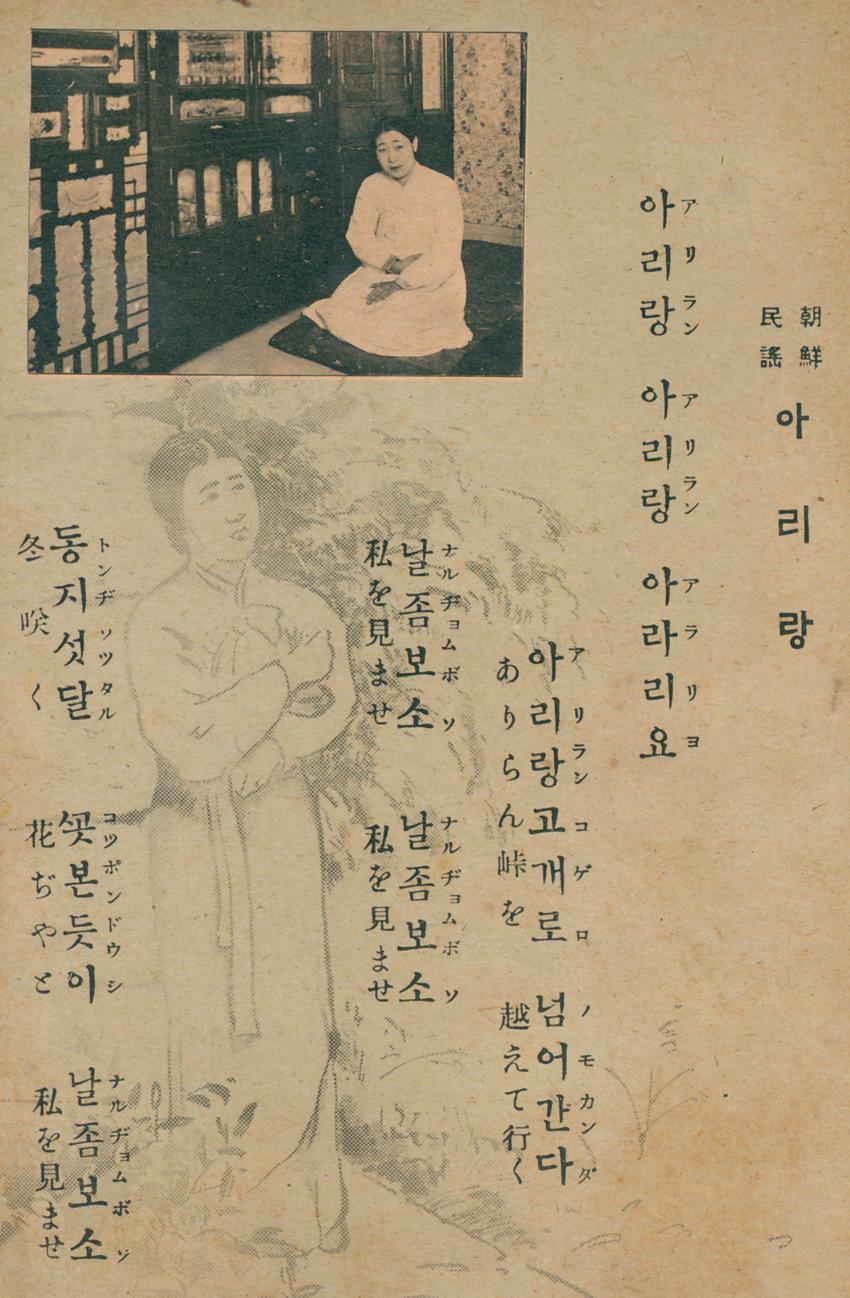 朝鮮
民謠
아리랑
アリラン アリラン アラリヨ
아리랑 아리랑 아라리요
アリランコゲロ ノモカンダ
아리랑고개로 넘어간다
ありらん峠を 越えて行く
ナルヂョムボソ ナルヂョムボソ
날좀보소 날좀보소
私を見ませ 私を見ませ
トンヂソツタル コツポンドウシ ナルヂョムボソ
동지섯달 ᄭᅩᆺ본듯이 날좀보소
冬咲く 花ぢやと 私を見ませ